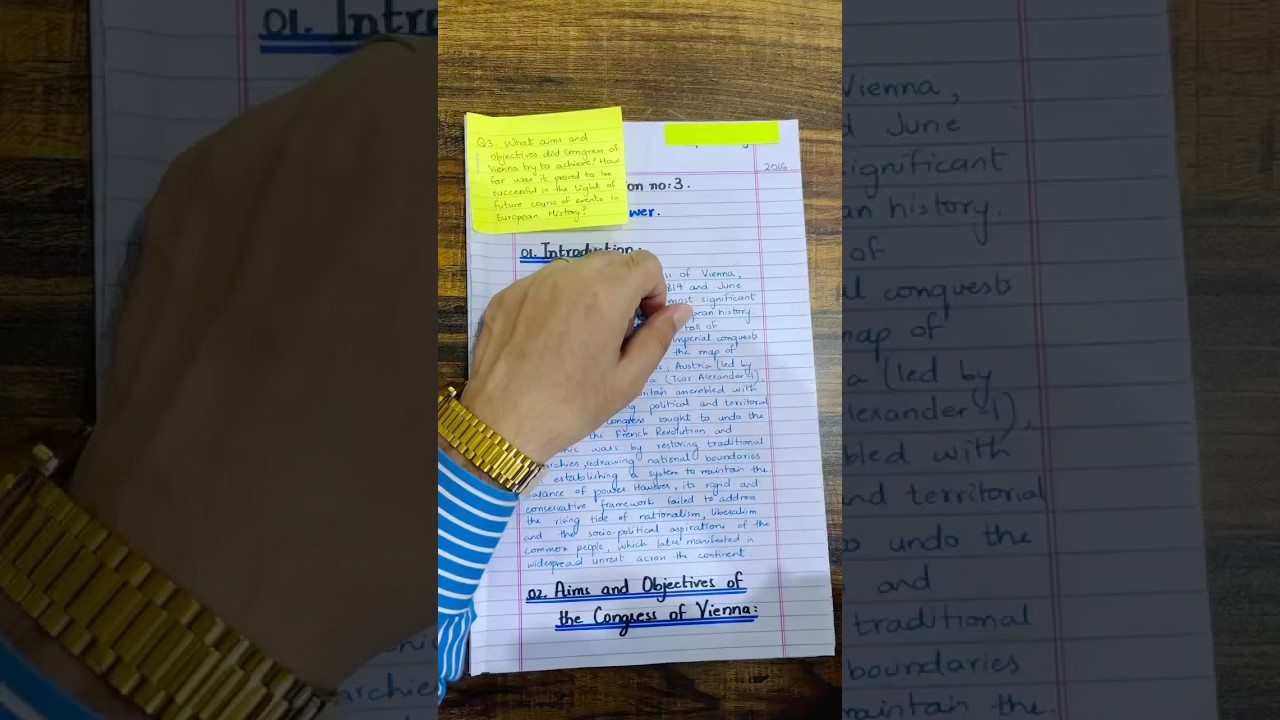 Q3. What aims and
objectives did Congress of
Vienna try to achieve? How
far was it proved to be
successful in the light of
future course of events in
European History?
2016.
on no: 3.
wer.
01. Introduction:
of Vienna,
814 and June
most significant
pean history.
fall of
imperial conquests
the map of
Austria (led by
(Tsar Alexander-I),
assembled with
political and territorial
Congress sought to undo the
the French Revolution and
wars by restoring traditional
archies, redrawing national boundaries
establishing a system to maintain the
balance of power. However, its rigid and
conservative framework failed to address
the rising tide of nationalism, liberalism
and the socio-political aspirations of the
common people, which later manifested in
widespread unrest across the continent.
02. Aims and Objectives of
the Congress of Vienna: